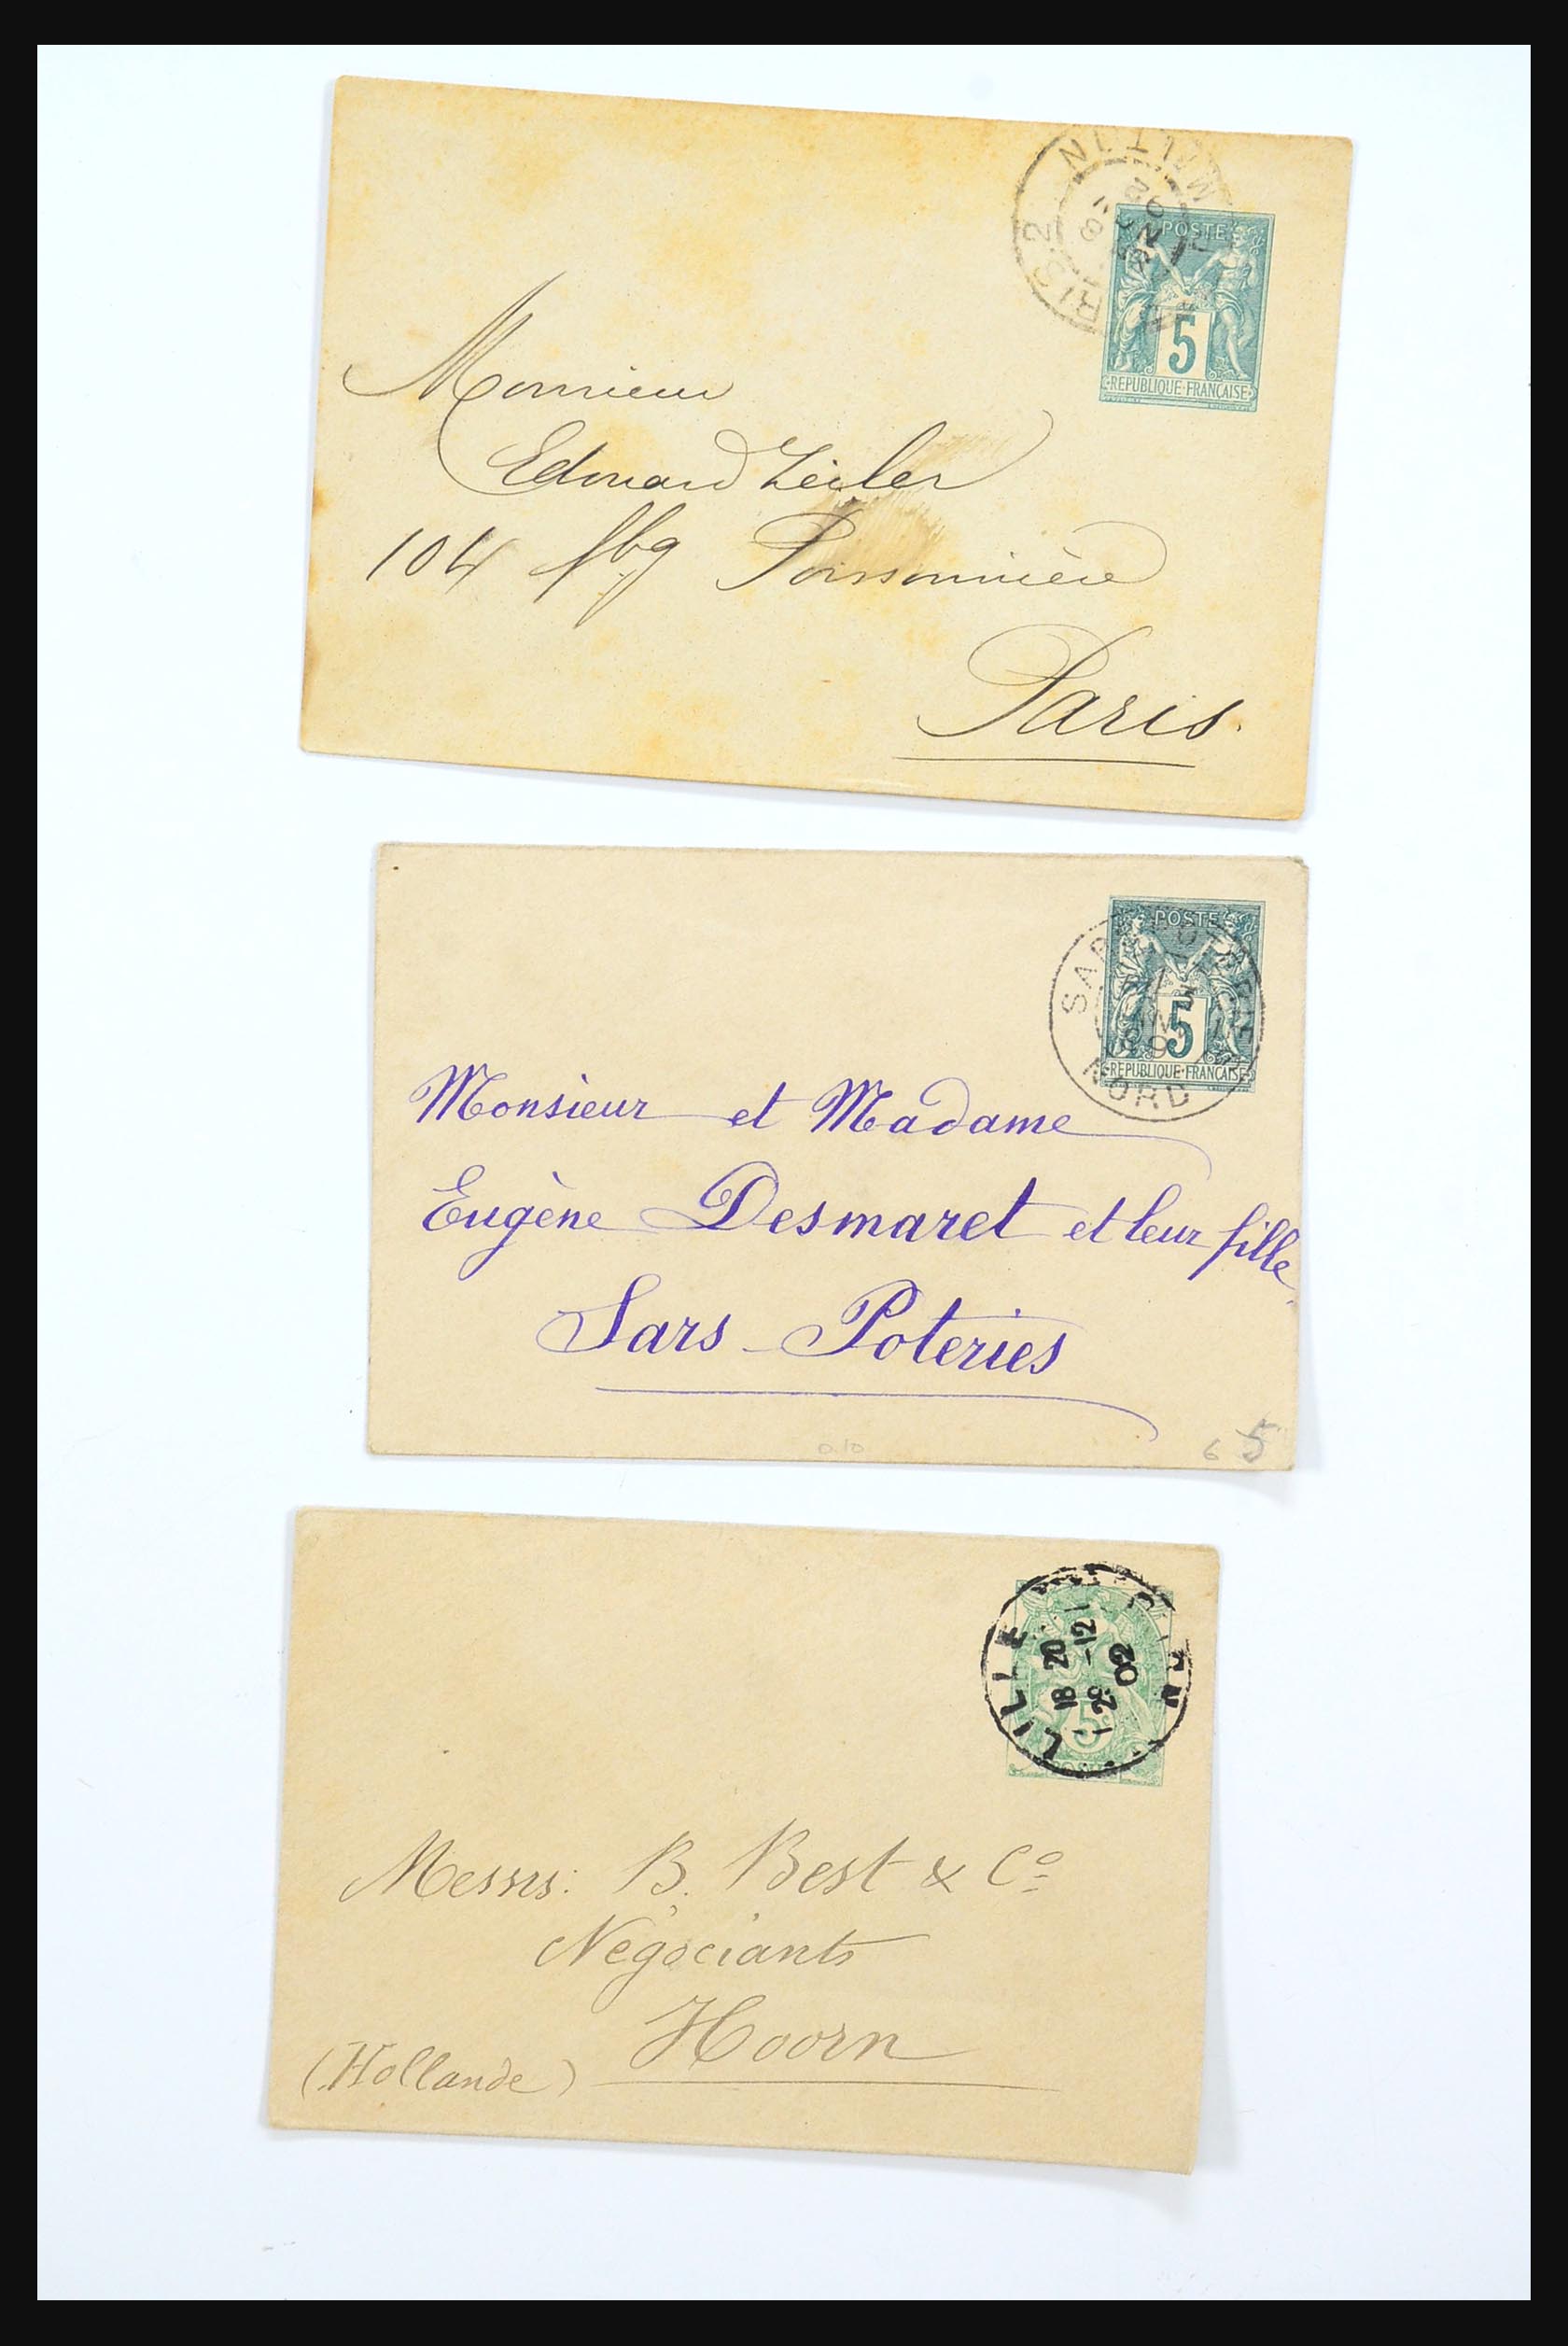 POSTE
5
REPUBLIQUE FRANCAISE
Monsieur
Edouard Zeiler
104 fbg Poissonnière
Paris.
POSTE
5
REPUBLIQUE FRANCAISE
NORD
Monsieur et Madame
Eugène Desmaret et leur fille
Sars-Poteries
0.10
6 5
LILLE
18 20
29 -12
02
5
Messrs: B. Best & Co
Négociants
Hoorn
(Hollande)